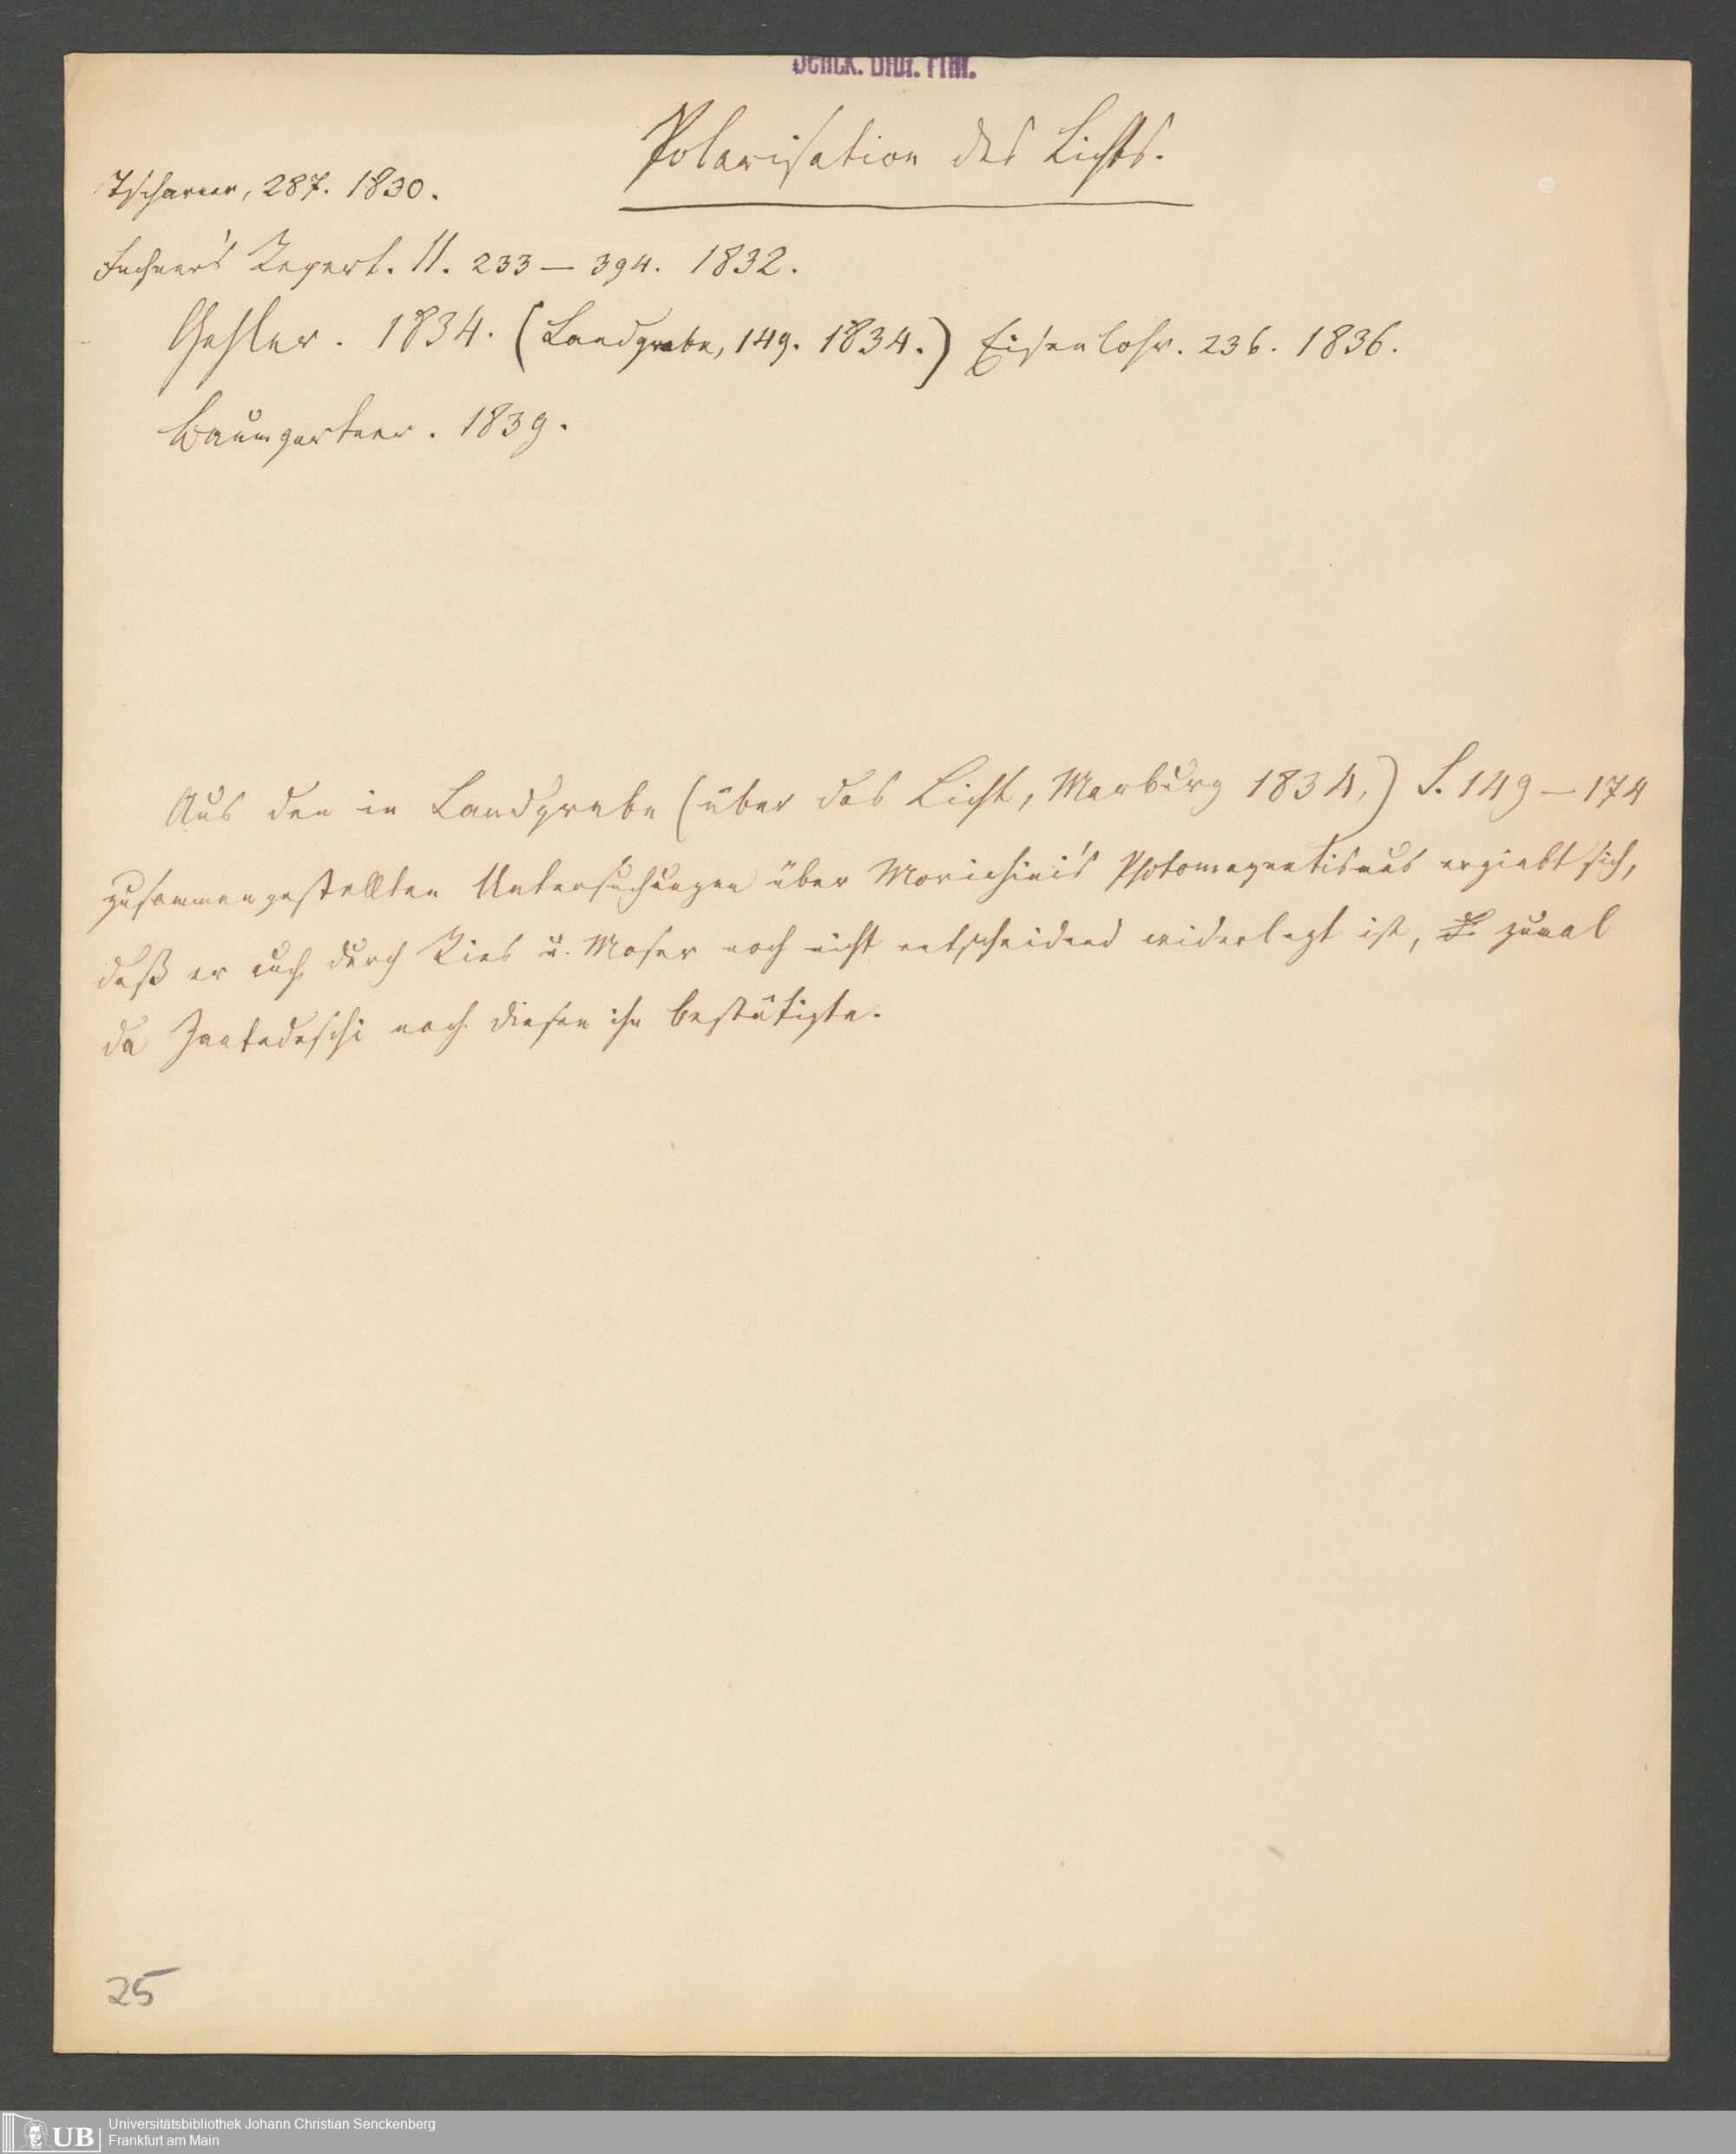 Senck. Bibl. Ffm.
Polarisation des Lichts.
Tscharner, 287. 1830.
Fechner's Repert. II. 233 — 394. 1832.
Gehler. 1834. (Landgrebe, 149. 1834.) Eisenlohr. 236. 1836.
Baumgartner. 1839.
Aus den in Landgrebe (über das Licht, Marburg 1834,) S. 149 — 174
zusammengestellten Untersuchungen über Morichini's Photomagnetismus ergiebt sich,
daß er auch durch Ries u. Moser noch nicht entscheidend widerlegt ist, zumal
da Zantedeschi nach diesen ihn bestätigte.
25
UB
Universitätsbibliothek Johann Christian Senckenberg
Frankfurt am Main